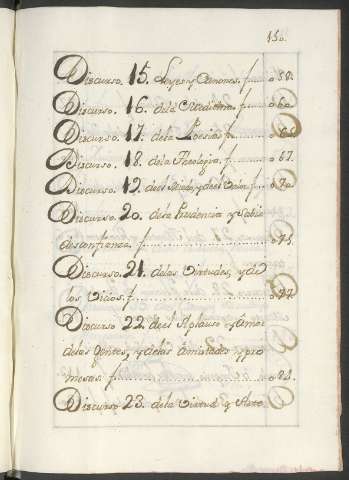 150.
Discurso. 15. Leyes y Canones. f. 058.
Discurso. 16. dela f. 060
Discurso. 17. dela Poesia f.
Discurso. 18. dela Theologia. f. 067.
Discurso. 19. del y del f. 070
Discurso. 20. dela Prudencia y Sabia
desconfianza. f. 075.
Discurso. 21. delas Virtudes, y de
los Vicios. f. 077.
Discurso 22. del Aplauso y Amor
delas gentes, y delas amistades y pro
mesas. f. 081.
Discurso. 23. dela Virtud q